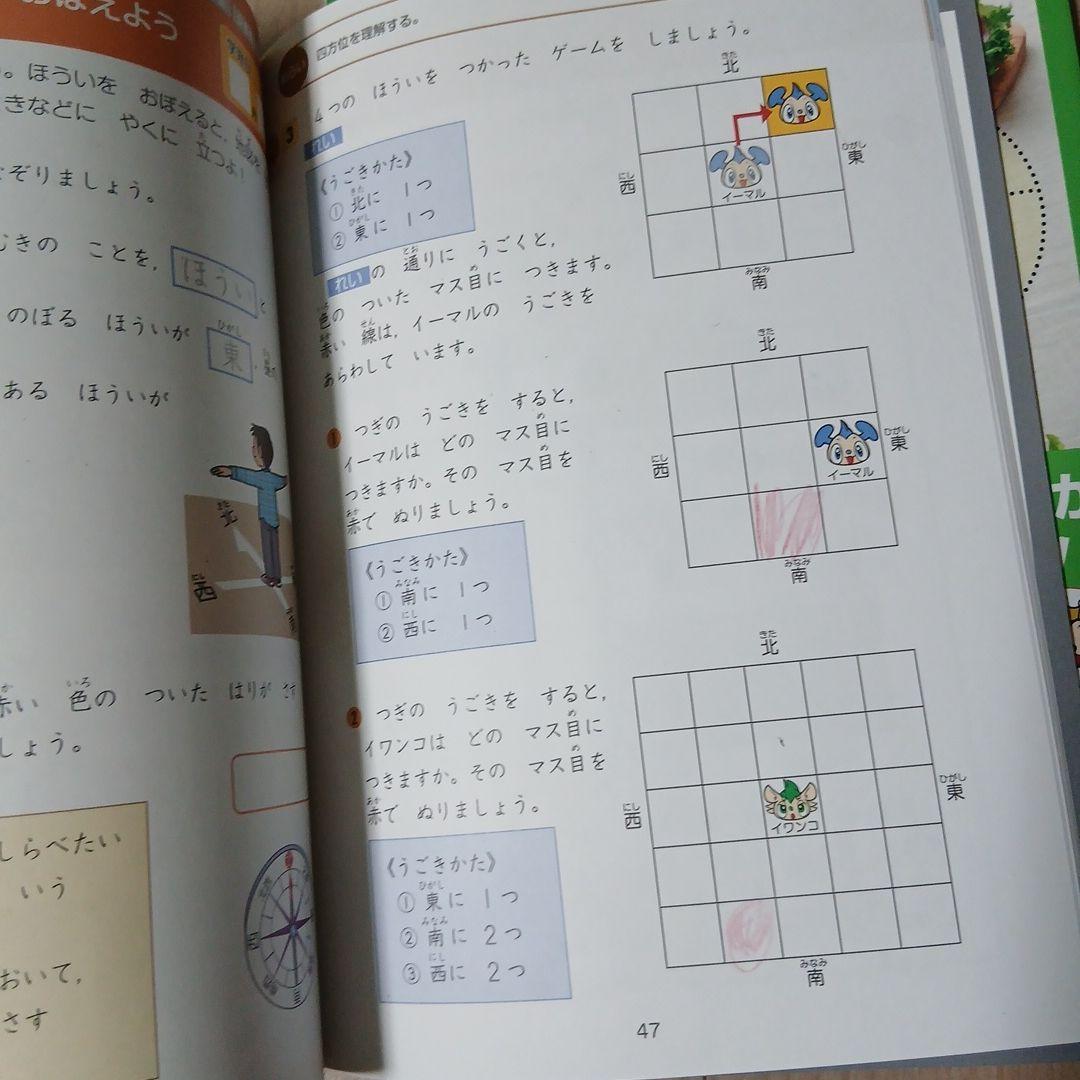 おぼえよう
ほういを おぼえると,
きなどに やくに 立つよ!
なぞりましょう。
むきの ことを, ほうい と
のぼる ほういが 東,
ある ほういが
北
西
赤い 色の ついた はりが さす
しょう。
しらべたい
いう
おいて,
さす
四方位を理解する。
3 4つの ほういを つかった ゲームを しましょう。
れい
《うごきかた》
① 北に 1つ
② 東に 1つ
れいの 通りに うごくと,
色の ついた マス目に つきます。
赤い 線は, イーマルの うごきを
あらわして います。
北
西
東
南
イーマル
1 つぎの うごきを すると,
イーマルは どの マス目に
つきますか。その マス目を
赤で ぬりましょう。
《うごきかた》
① 南に 1つ
② 西に 1つ
北
西
東
南
イーマル
2 つぎの うごきを すると,
イワンコは どの マス目に
つきますか。その マス目を
赤で ぬりましょう。
《うごきかた》
① 東に 1つ
② 南に 2つ
③ 西に 2つ
北
西
東
南
イワンコ
47